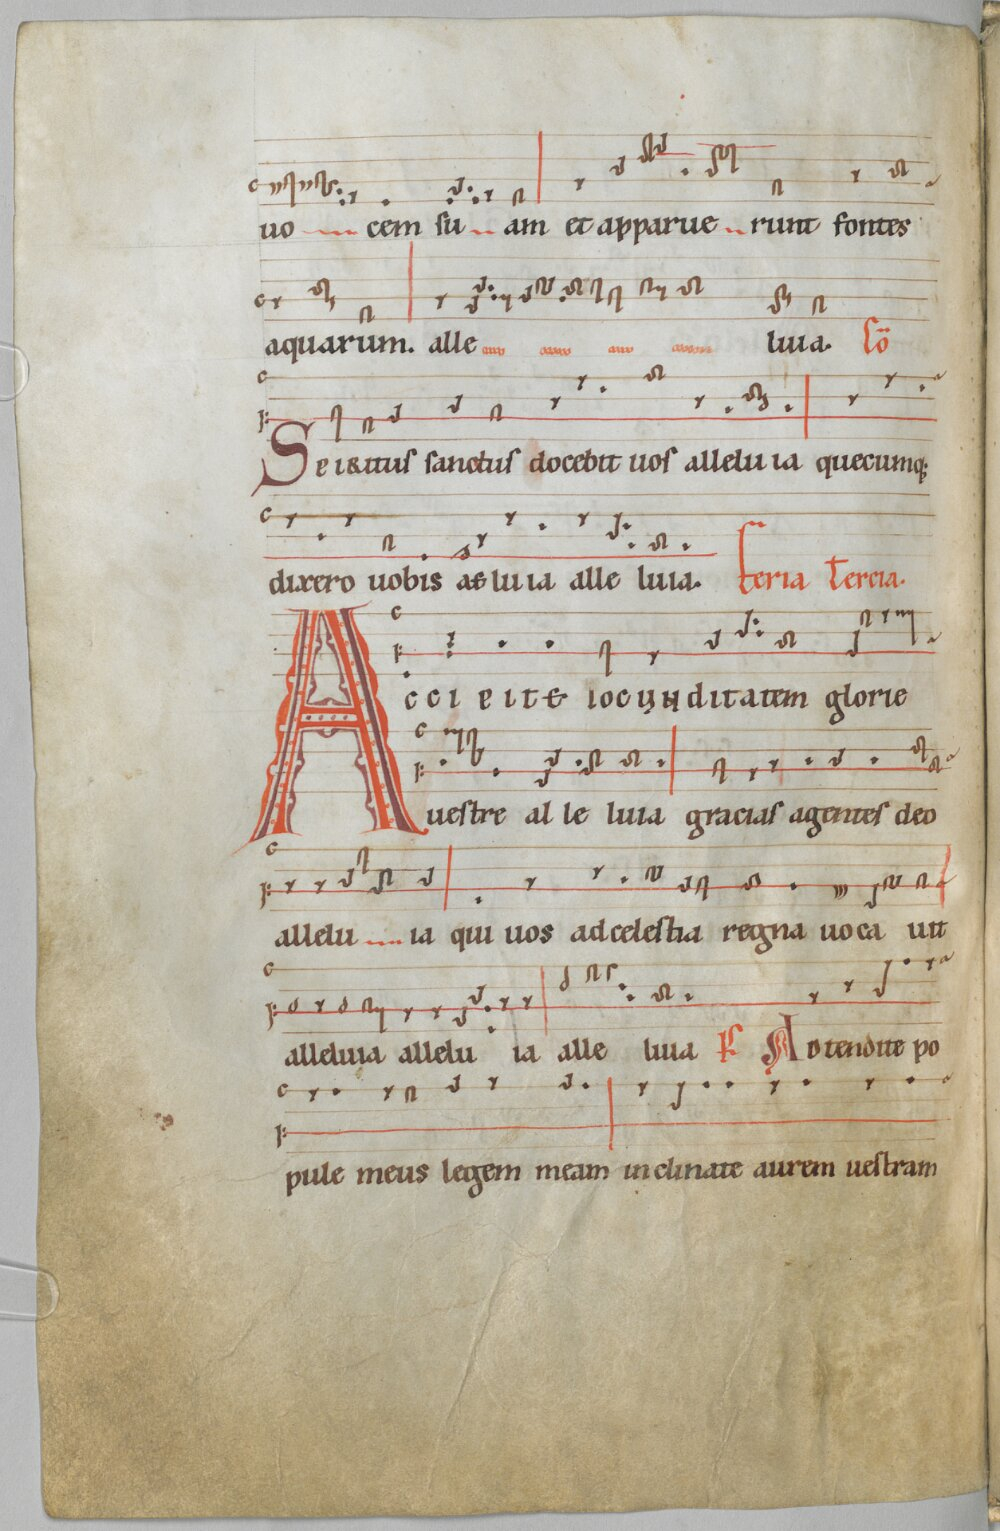 uo cem su am et apparue runt fontes
aquarum. alle luia. Co
Spiritus sanctus docebit uos allelu ia quecumq;
dixero uobis aeluia alle luia. feria tercia.
Accipite iocunditatem glorie
uestre al le luia gracias agentes deo
allelu ia qui uos ad celestia regna uoca uit
alleluia allelu ia alle luia Ps Adtendite po
pule meus legem meam inclinate aurem uestram